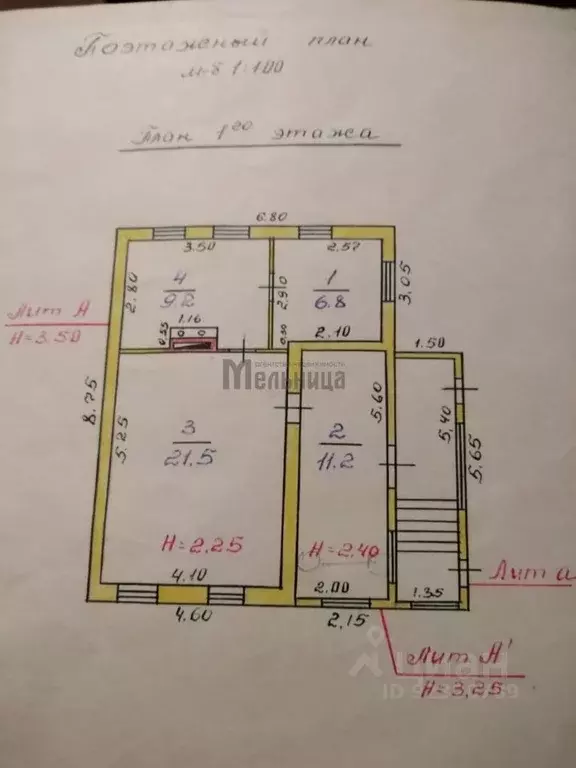 Поэтажный план
м-б 1:100
План 1го этажа
6.80
3.50
2.57
2.80
4
9.2
2.90
1
6.8
3.05
Лит А
H=3.50
0.55
1.16
0.50
2.10
1.50
агентство недвижимости
Мельница
8.75
5.25
5.60
5.40
5.65
3
21.5
2
11.2
H=2.25
H=2.40
4.10
2.00
1.35
Лит а
4.60
2.15
Лит А'
H=3,25
циан